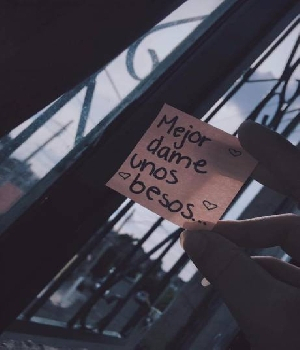 Mejor
dame
unos
besos...